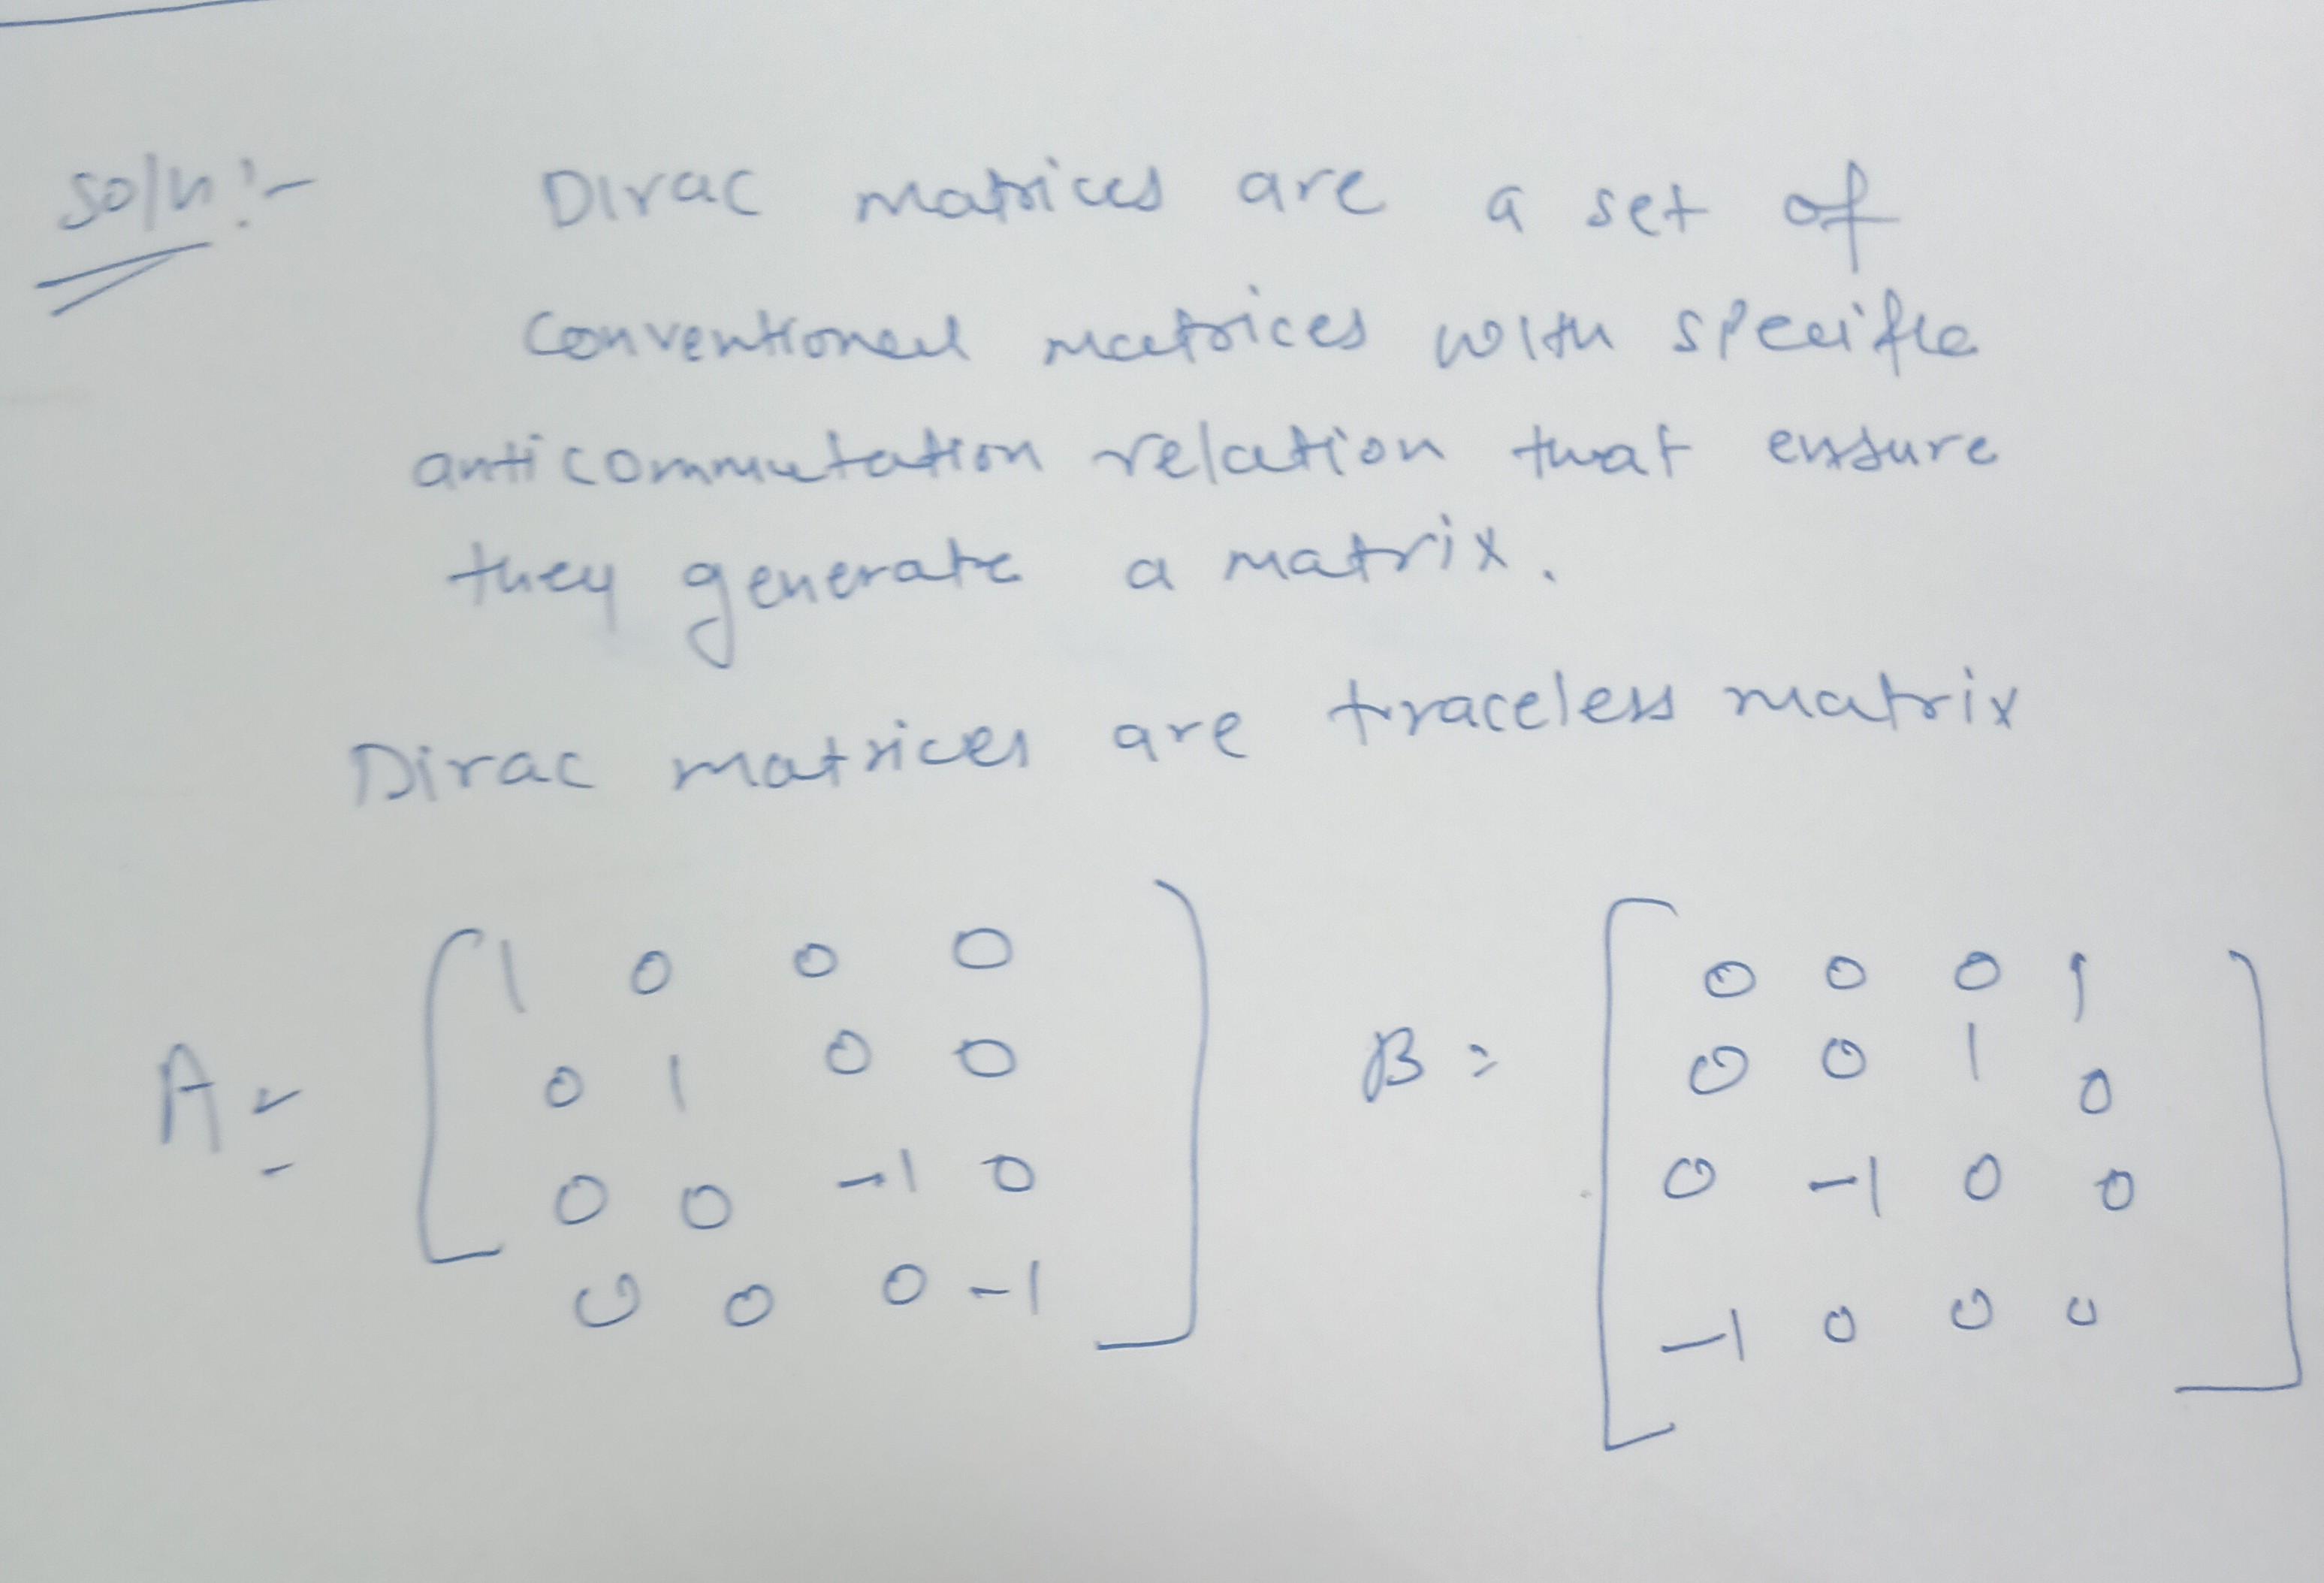 Soln:-
Dirac matrices are a set of
Conventional matrices with specific
anticommutation relation that ensure
they generate a matrix.
Dirac matrices are traceless matrix
A = [ 1 0 0 0
0 1 0 0
0 0 -1 0
0 0 0 -1 ]
B = [ 0 0 0 1
0 0 1 0
0 -1 0 0
-1 0 0 0 ]